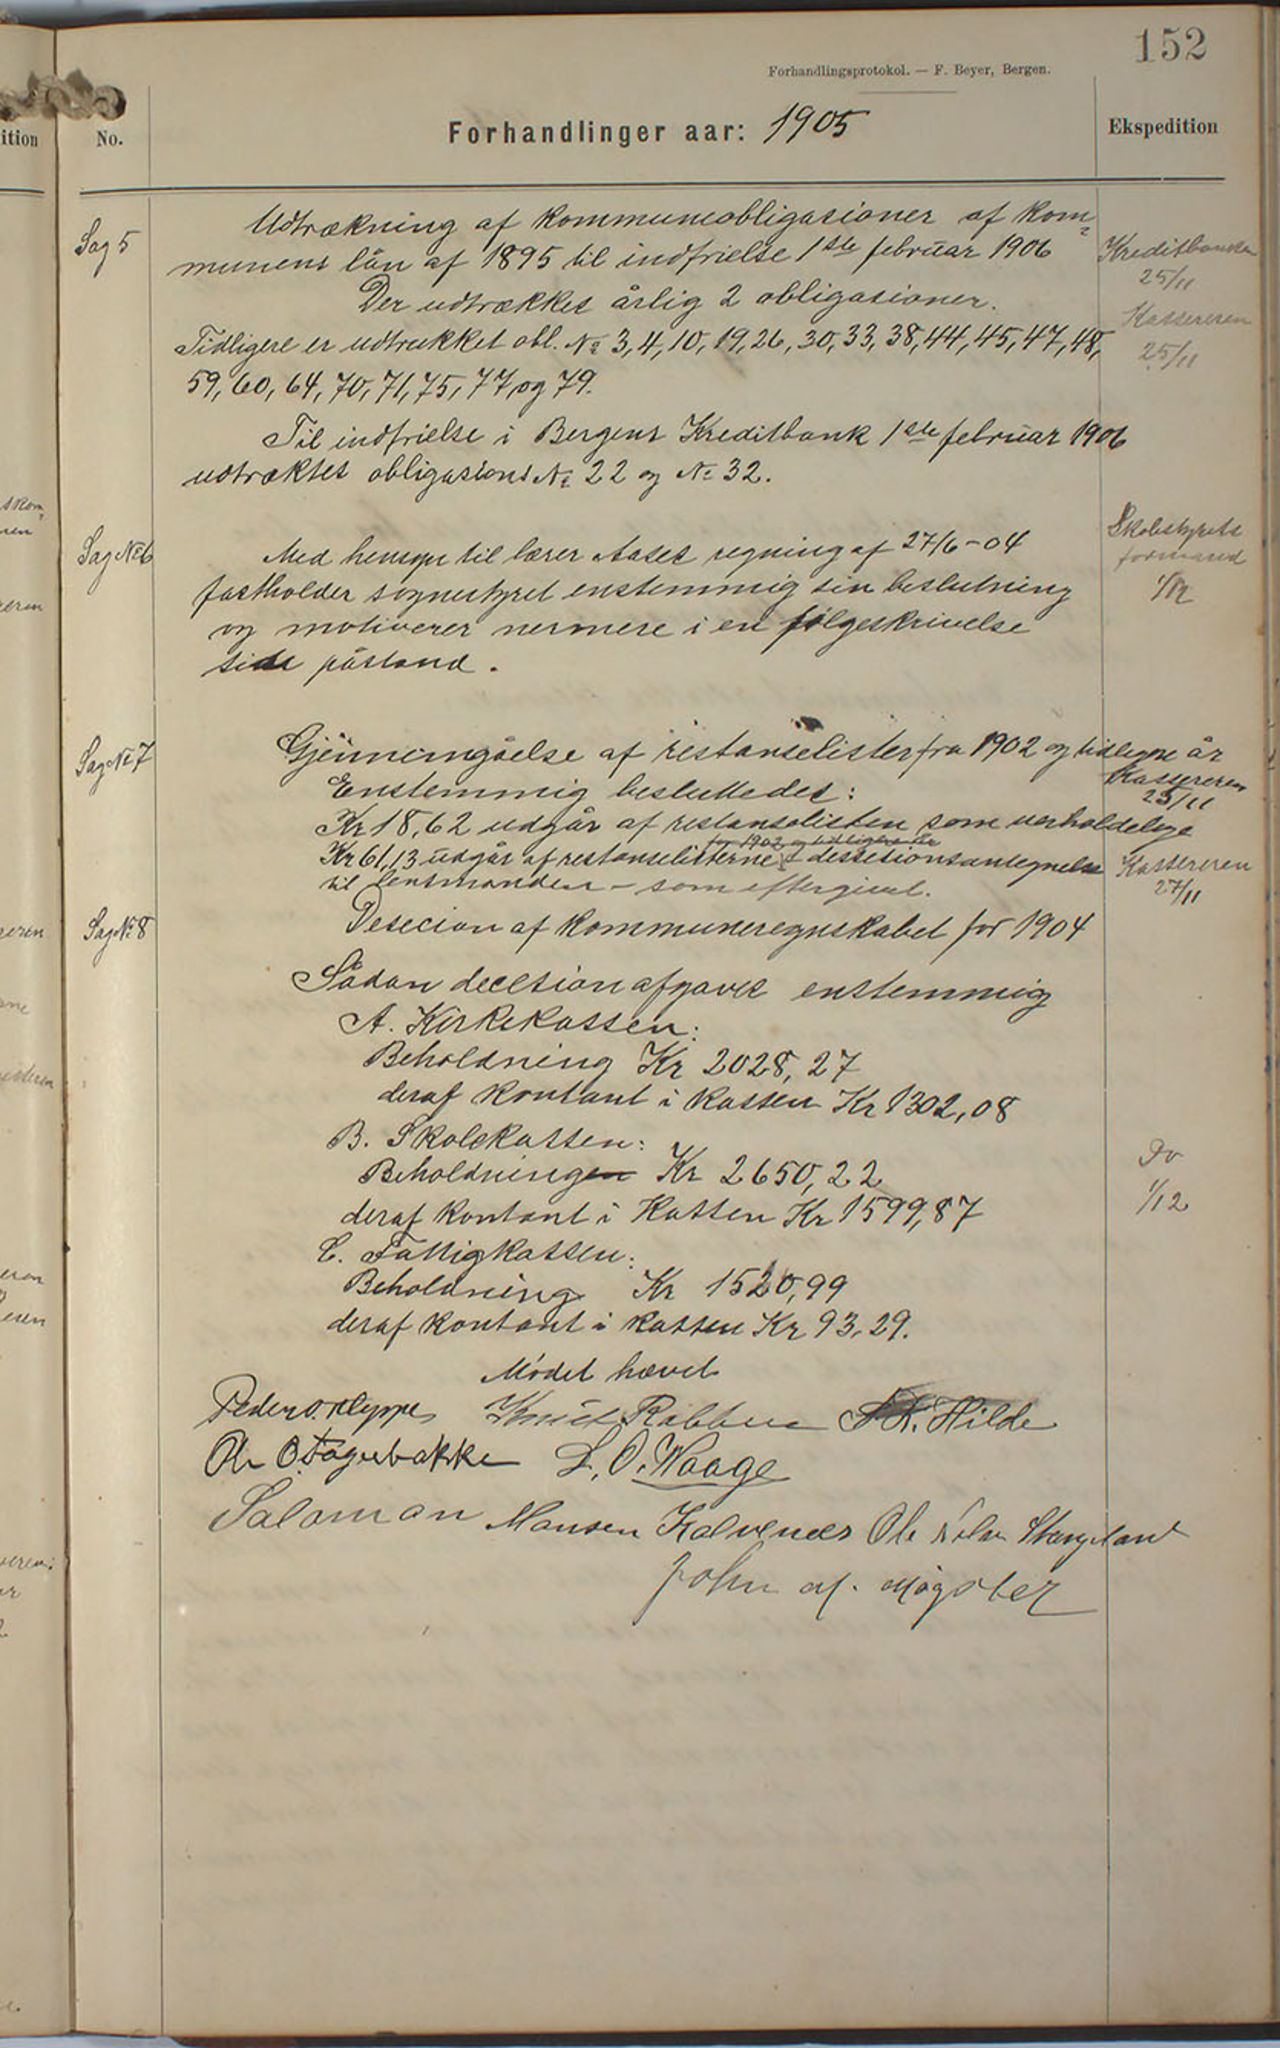 152
Forhandlingsprotokol. — F. Beyer, Bergen.
ition
No.
Forhandlinger aar: 1905
Ekspedition
Sag 5
Udtrækning af kommuneobligasioner af kom-
munens lån af 1895 til indfrielse 1ste februar 1906
Kreditbanken
25/11
Der udtrækkes årlig 2 obligasioner.
Kassereren
25/11
Tidligere er udtrukket obl. No 3, 4, 10, 19, 26, 30, 33, 38, 44, 45, 47, 48,
59, 60, 64, 70, 71, 75, 77, og 79.
Til indfrielse i Bergens Kreditbank 1ste februar 1906
udtræktes obligasions No 22 og No 32.
Sag No 6
Skolestyrets
formand
1/12
Med hensyn til lærer Aases regning af 27/6-04
fastholder sognestyret enstemmig sin beslutning
og motiverer nermere i en følgeskrivelse
sin påstand.
Sag No 7
Gjennemgåelse af restanselister fra 1902 og tidligere år
Kassereren
25/11
Enstemmig besluttedes:
Kr 18,62 udgår af restanselisten som uerholdelige
for 1902 og tidligere år
Kr 61,13 udgår af restanselisterne dessisionsantegnelse
til lensmanden - som eftergivet.
Kassereren
27/11
Sag No 8
Desecion af kommuneregnskabet for 1904
Sådan decesion afgaves enstemmig
A. Kirkekassen:
Beholdning Kr 2028,27
deraf kontant i kassen Kr 1302,08
B. Skolekassen:
Beholdningen Kr 2650,22
Do
1/12
deraf kontant i Kassen Kr 1599,87
C. Fattigkassen:
Beholdning Kr 1520,99
deraf kontant i kassen Kr 93,29.
Mødet hævet
Peder O. Kleppe Knut Rabben A. Hilde
Ole O. Fagerbakke L. O. Waage
Saloman Mansen Kalvenes Ole Stangeland
John M. Møgster